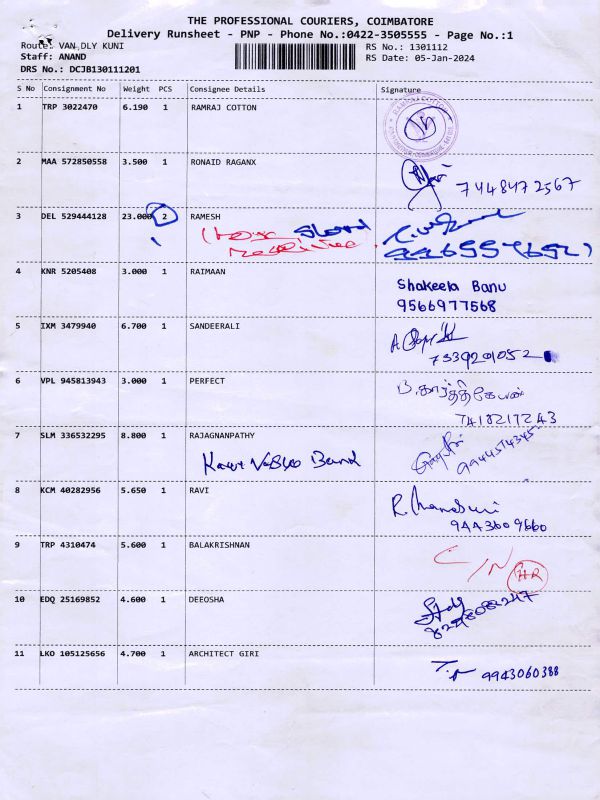 THE PROFESSIONAL COURIERS, COIMBATORE
Delivery Runsheet - PNP - Phone No.:0422-3505555 - Page No.:1
Route: VAN DLY KUNI RS No.: 1301112
Staff: ANAND RS Date: 05-Jan-2024
DRS No.: DCJB130111201
S No Consignment No Weight PCS Consignee Details Signature
1 TRP 3022470 6.190 1 RAMRAJ COTTON
RAMRAJ COTTON
2 MAA 572850558 3.500 1 RONAID RAGANX
7448472567
3 DEL 529444128 23.000 2 RAMESH
4 KNR 5205408 3.000 1 RAIMAAN
Shakeela Banu
9566977568
5 IXM 3479940 6.700 1 SANDEERALI
7339201052
6 VPL 945813943 3.000 1 PERFECT
ப.கார்த்திகேயன்
7418217243
7 SLM 336532295 8.800 1 RAJAGNANPATHY
9944574345
8 KCM 40282956 5.650 1 RAVI
9443609660
9 TRP 4310474 5.600 1 BALAKRISHNAN
C/N
HR
10 EDQ 25169852 4.600 1 DEEOSHA
11 LKO 105125656 4.700 1 ARCHITECT GIRI
9943060388